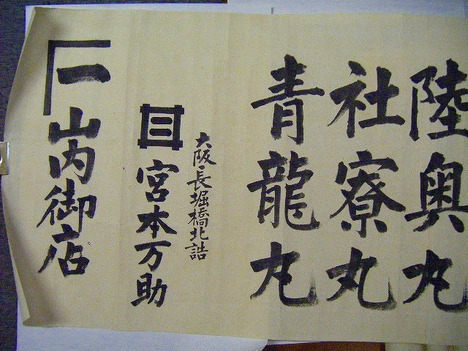 陸奥丸
社寮丸
青龍丸
大阪長堀橋北詰
宮本万助
一
山内御店